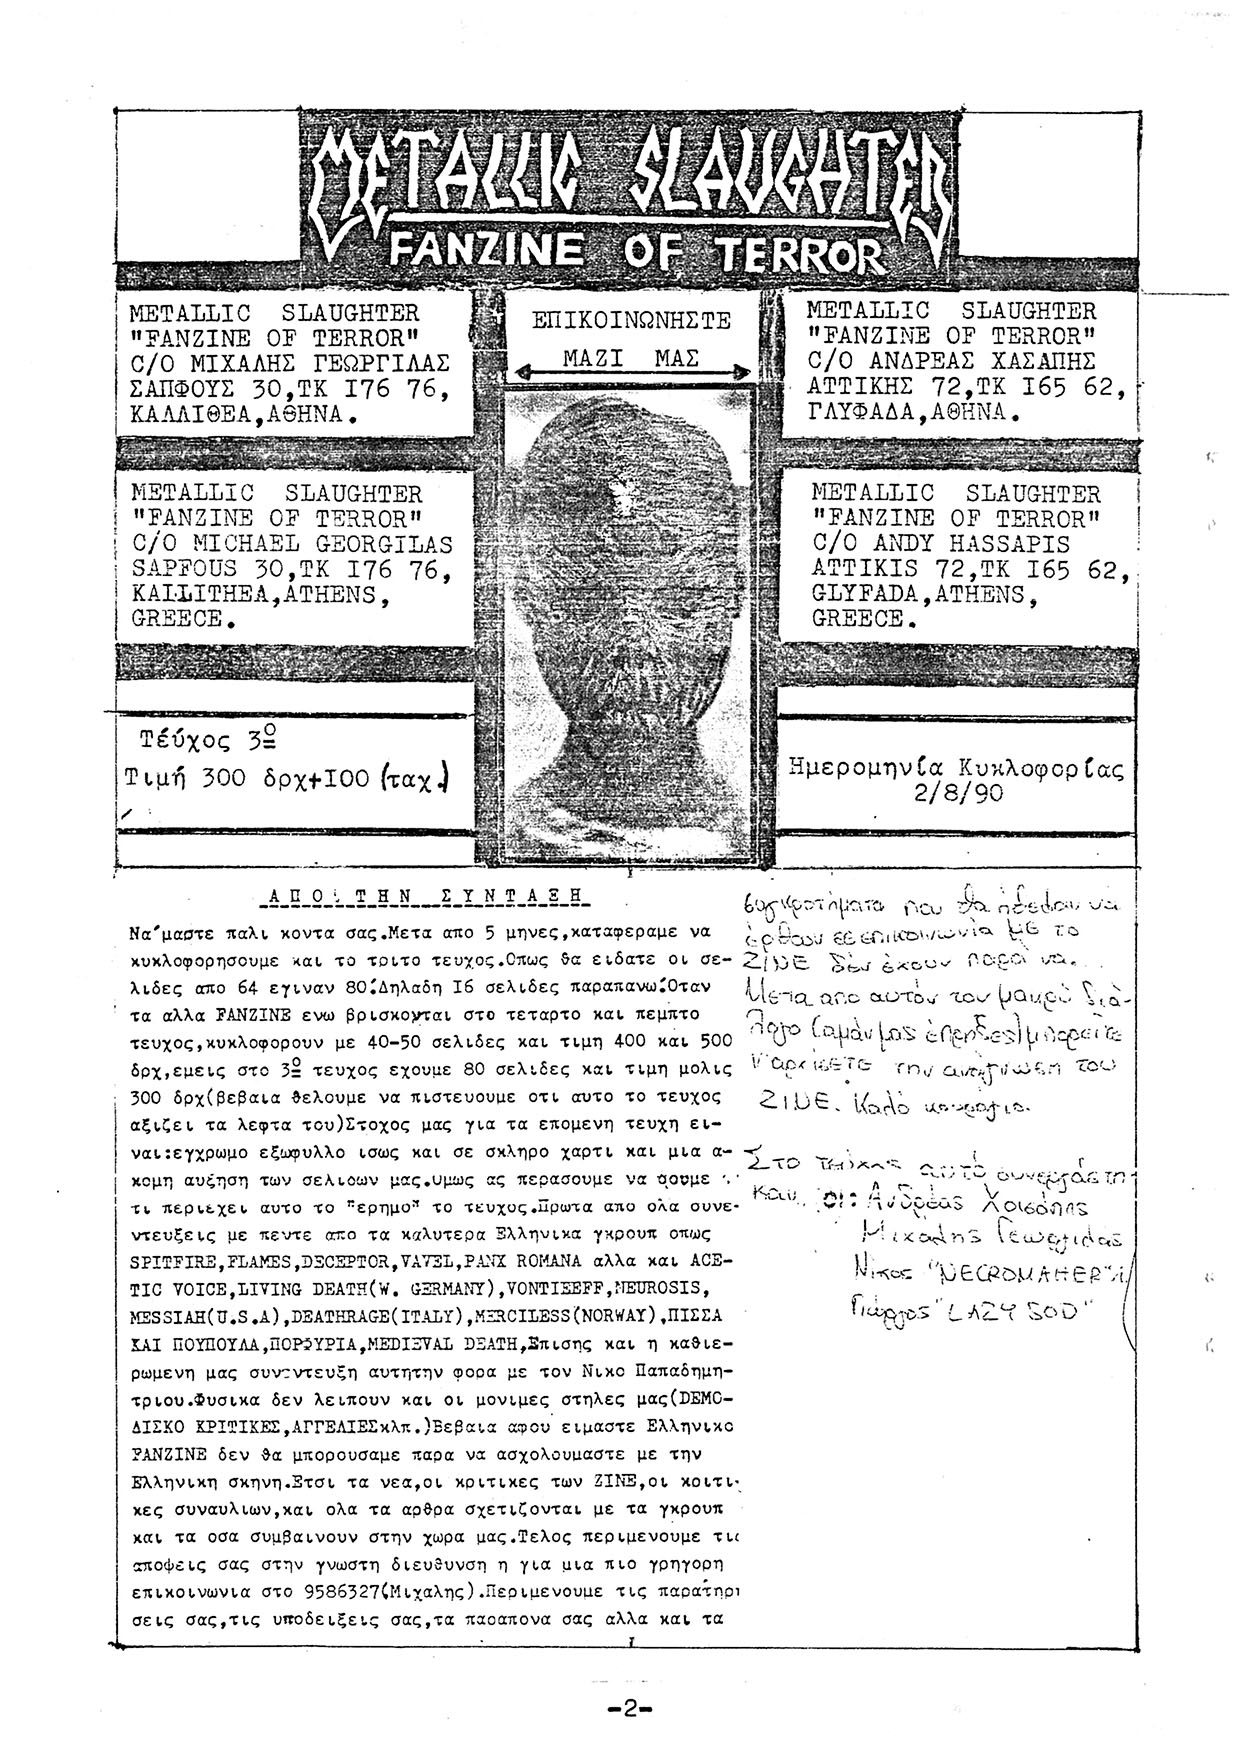 METALLIC SLAUGHTER
FANZINE OF TERROR
METALLIC SLAUGHTER
"FANZINE OF TERROR"
C/O ΜΙΧΑΛΗΣ ΓΕΩΡΓΙΛΑΣ
ΣΑΠΦΟΥΣ 30,ΤΚ I76 76,
ΚΑΛΛΙΘΕΑ,ΑΘΗΝΑ.
ΕΠΙΚΟΙΝΩΝΗΣΤΕ
ΜΑΖΙ ΜΑΣ
METALLIC SLAUGHTER
"FANZINE OF TERROR"
C/O ΑΝΔΡΕΑΣ ΧΑΣΑΠΗΣ
ΑΤΤΙΚΗΣ 72,ΤΚ I65 62,
ΓΛΥΦΑΔΑ,ΑΘΗΝΑ.
METALLIC SLAUGHTER
"FANZINE OF TERROR"
C/O MICHAEL GEORGILAS
SAPFOUS 30,TK I76 76,
KALLITHEA,ATHENS,
GREECE.
METALLIC SLAUGHTER
"FANZINE OF TERROR"
C/O ANDY HASSAPIS
ATTIKIS 72,TK I65 62,
GLYFADA,ATHENS,
GREECE.
Τέύχος 3º
Τιμή 300 δρχ+I00 (ταχ.)
Ημερομηνία Κυκλοφορίας
2/8/90
ΑΠΟ ΤΗΝ ΣΥΝΤΑΞΗ
Να΄μαστε παλι κοντα σας.Μετα απο 5 μηνες,καταφεραμε να
κυκλοφορησουμε και το τριτο τευχος.Οπως θα ειδατε οι σε-
λιδες απο 64 εγιναν 80!Δηλαδη I6 σελιδες παραπανω!Οταν
τα αλλα FANZINE ενω βρισκονται στο τεταρτο και πεμπτο
τευχος,κυκλοφορουν με 40-50 σελιδες και τιμη 400 και 500
δρχ,εμεις στο 3º τευχος εχουμε 80 σελιδες και τιμη μολις
300 δρχ(βεβαια θελουμε να πιστευουμε οτι αυτο το τευχος
αξιζει τα λεφτα του)Στοχος μας για τα επομενη τευχη ει-
ναι:εγχρωμο εξωφυλλο ισως και σε σκληρο χαρτι και μια α-
κομη αυξηση των σελιδων μας.Ομως ας περασουμε να δουμε
τι περιεχει αυτο το "ερημο" το τευχος.Πρωτα απο ολα συνε-
ντευξεις με πεντε απο τα καλυτερα Ελληνικα γκρουπ οπως
SPITFIRE,FLAMES,DECEPTOR,VAVEL,PANX ROMANA αλλα και ACE-
TIC VOICE,LIVING DEATH(W. GERMANY),VONTIEEFF,NEUROSIS,
MESSIAH(U.S.A),DEATHRAGE(ITALY),MERCILESS(NORWAY),ΠΙΣΣΑ
ΚΑΙ ΠΟΥΠΟΥΛΑ,ΠΟΡΦΥΡΙΑ,MEDIEVAL DEATH,Επισης και η καθιε-
ρωμενη μας συνεντευξη αυτητην φορα με τον Νικο Παπαδημη-
τριου.Φυσικα δεν λειπουν και οι μονιμες στηλες μας(DEMO-
ΔΙΣΚΟ ΚΡΙΤΙΚΕΣ,ΑΓΓΕΛΙΕΣκλπ.)Βεβαια αφου ειμαστε Ελληνικο
FANZINE δεν θα μπορουσαμε παρα να ασχολουμαστε με την
Ελληνικη σκηνη.Ετσι τα νεα,οι κριτικες των ZINE,οι κριτι-
κες συναυλιων,και ολα τα αρθρα σχετιζονται με τα γκρουπ
και τα οσα συμβαινουν στην χωρα μας.Τελος περιμενουμε τις
αποψεις σας στην γνωστη διευθυνση η για μια πιο γρηγορη
επικοινωνια στο 9586327(Μιχαλης).Περιμενουμε τις παρατηρη
σεις σας,τις υποδειξεις σας,τα παραπονα σας αλλα και τα
συγκροτήματα που θα ήθελαν να
έρθουν σε επικοινωνία με το
ZINE δεν έχουν παρά να...
Μετα απο αυτόν τον μακρύ διά-
λογο (αμάν μας έπρηξες) μπορείτε
ν'αρχίσετε την ανάγνωση του
ZINE. Καλό κουράγιο.
Στο τεύχος αυτό συνεργάστη-
καν οι: Ανδρέας Χασάπης
Μιχάλης Γεωργιλας
Νικος "NECROMAHER"
Γιώργος "LAZY SOD"
-2-